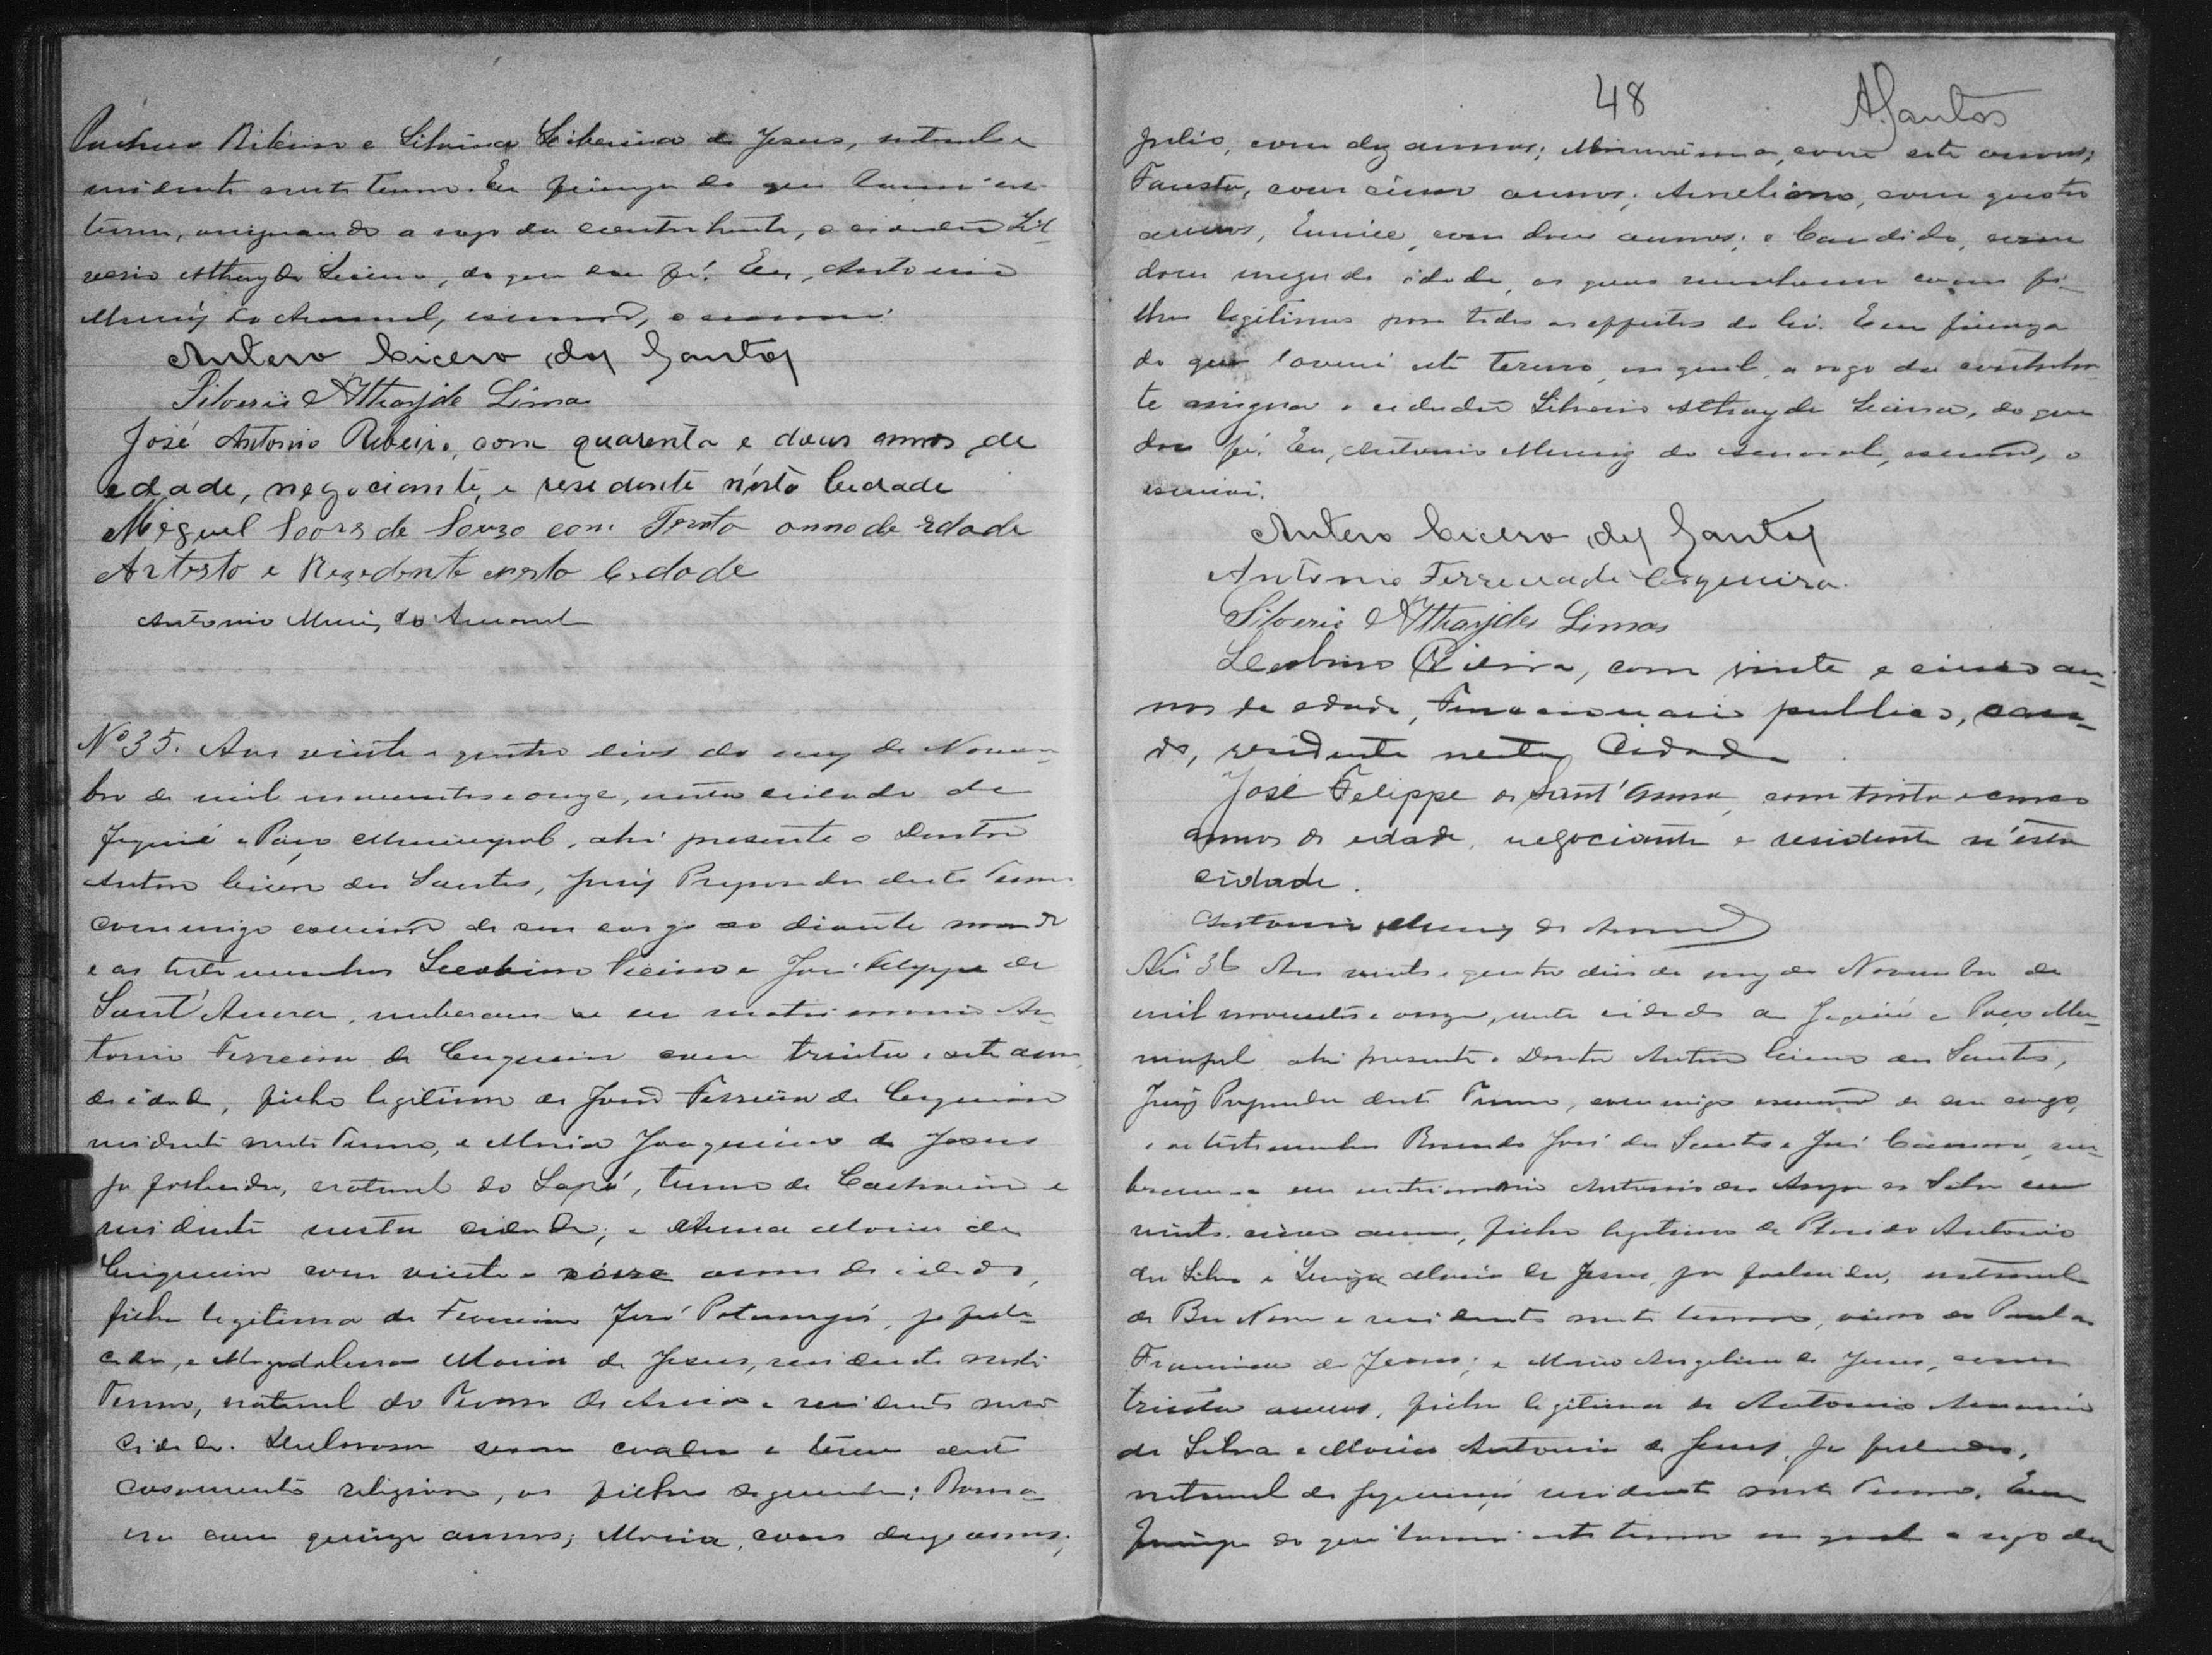 Ribeiro e Silvina Liberina de Jesus, natural e
residente neste termo. Em firmeza do que lavrei este
termo, assignando a rogo da contrahente, o cidadão Sil-
verio Athayde Lima, do que dou fé. Eu, Antonio
Muniz do Amaral, escrivão, o escrevi.
Antero Cicero dos Santos
Silverio Athayde Lima
José Antonio Ribeiro, com quarenta e dous annos de
edade, negociante, e residente n'esta Cidade
Miguel Soares de Souza com Trinta anno de edade
Artista e Rezidente nesta Cidade
Antonio Muniz do Amaral
Nº 35. Aos vinte e quatro dias do mez de Novem-
bro de mil novecentos e onze, nesta cidade de
Jequié e Paço Municipal, ahi presente o Doutor
Antero Cicero dos Santos, Juiz Preparador deste Termo
commigo escrivão de seu cargo ao diante nomeado
e as testemunhas Leobino Vieira e José Felippe de
Sant'Anna, receberam-se em matrimonio An-
tonio Ferreira de Cerqueira com trinta e sete annos
de idade, filho legitimo de José Ferreira de Cerqueira
residente neste Termo, e Maria Joaquina de Jesus
ja fallecida, natural do Sapé, termo de Cachoeira e
residente nesta cidade; e Anna Maria de
Cerqueira com vinte e nove annos de idade,
filha legitima de José, ja falle-
cido, e Magdalena Maria de Jesus, residente neste
Termo, natural do Termo de Areia e residente nesta
Cidade. Declararam serem casados e terem deste
casamento religioso, os filhos seguintes:
com quinze annos; Maria, com doze annos;
48
A. Santos
Julio, com dez annos; com sete annos;
Fausto, com cinco annos; Aureliano, com quatro
annos, Eunice, com dous annos; e Candido, com
dous mezes de idade, os quaes reconhecem como fi-
lhos legitimos para todos os effeitos da lei. E em firmeza
do que lavrei este termo, no qual, a rogo da contrahen-
te assigna o cidadão Silverio Athayde Lima, do que
dou fé. Eu, Antonio Muniz do Amaral, escrivão, o
escrevi.
Antero Cicero dos Santos
Antonio Ferreira de Cerqueira.
Silverio Athayde Lima
Leobino Vieira, com vinte e cinco an-
nos de edade, Funccionario publico, casa-
do, residente nesta Cidade.
José Felippe de Sant'Anna, com trinta e cinco
annos de edade, negociante e residente n'esta
cidade.
Antonio Muniz do Amaral
Nº 36 Aos vinte e quatro dias do mez de Novembro de
mil novecentos e onze, nesta cidade de Jequié e Paço Mu-
nicipal ahi presente o Doutor Antero Cicero dos Santos,
Juiz Preparador deste Termo, commigo escrivão de seu cargo,
e as testemunhas José dos Santos e José, rece-
beram-se em matrimonio Antonio dos Anjos da Silva com
vinte e cinco annos, filho legitimo de Antonio
da Silva e Maria de Jesus, ja fallecidos, natural
de Boa Nova e residente neste termo, viuvo de Paula
Francisca de Jesus; e Maria Angelica de Jesus, com
trinta annos, filha legitima de Antonio
da Silva e Maria Antonia de Jesus, ja fallecidos,
natural de e residente neste Termo. E em
firmeza do que lavrei este termo no qual a rogo da